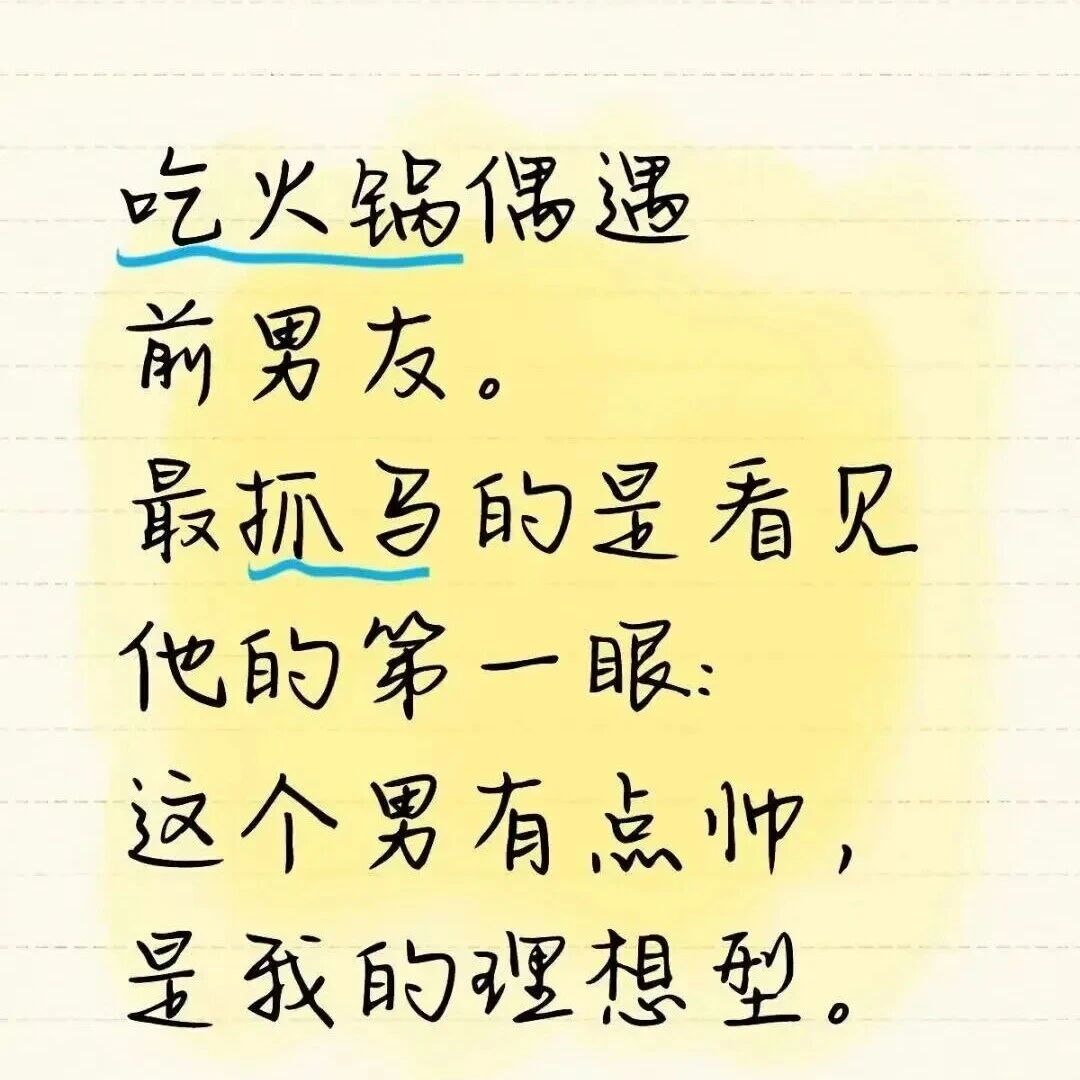 吃火锅偶遇
前男友。
最抓马的是看见
他的第一眼：
这个男有点帅，
是我的理想型。